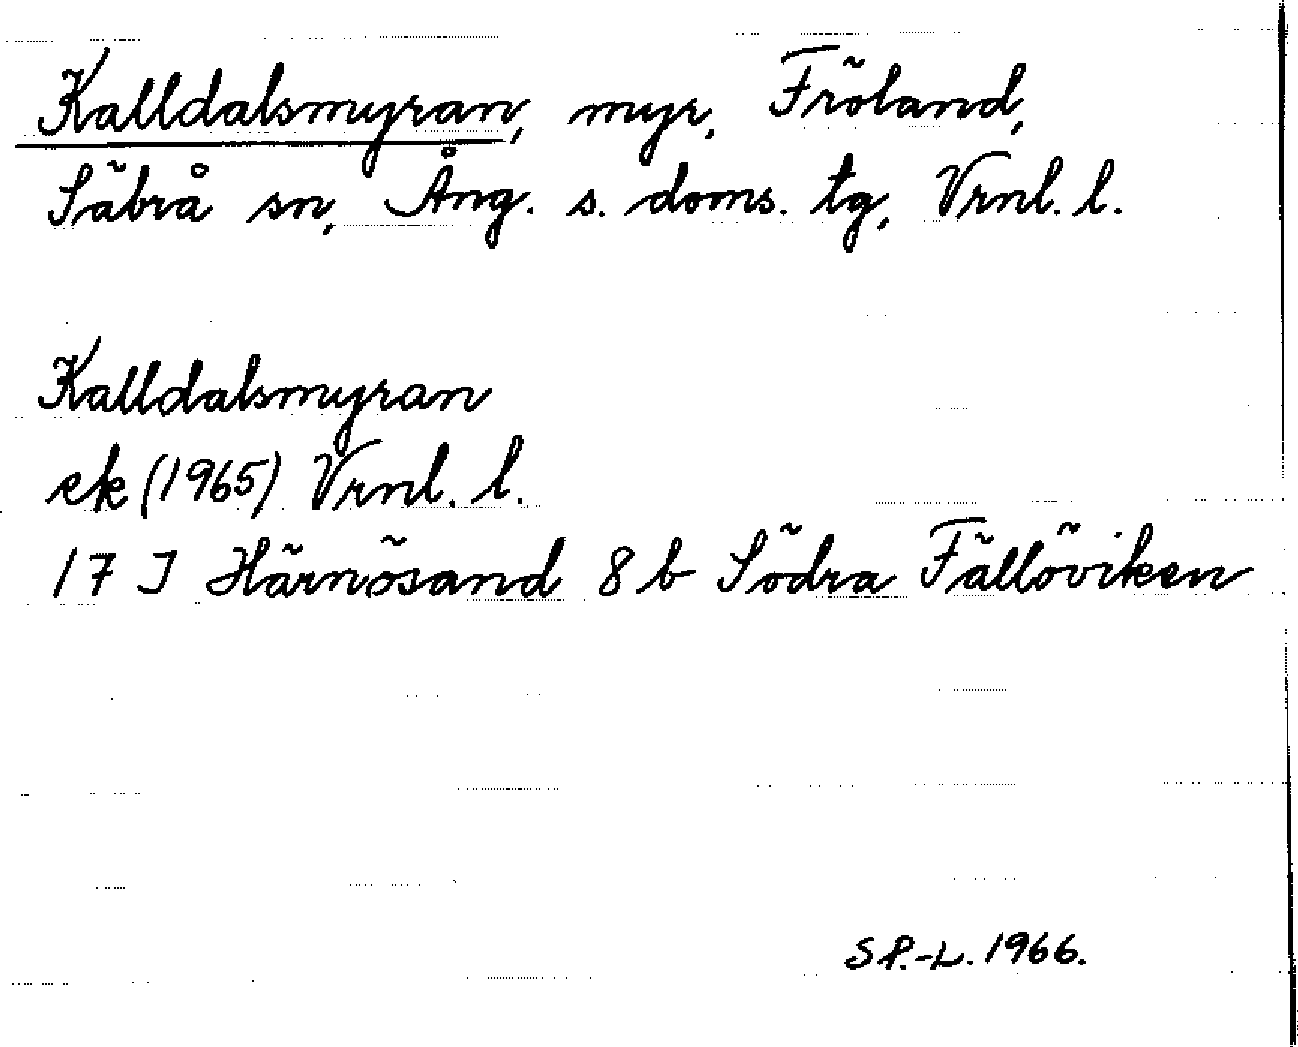 Kalldalsmyran, myr, Fröland,
Säbrå sn, Ång. s. doms. tg, Vrnl. l.
Kalldalsmyran
ek (1965) Vrnl. l.
17 I Härnösand 8 b Södra Fällöviken
S P.-L. 1966.